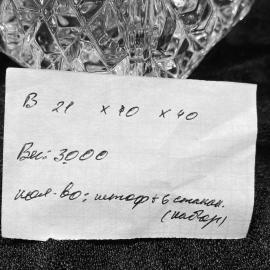 В 21 x 40 x 40
Вес: 3000
кол-во: штоф + 6 стакан.
(набор)